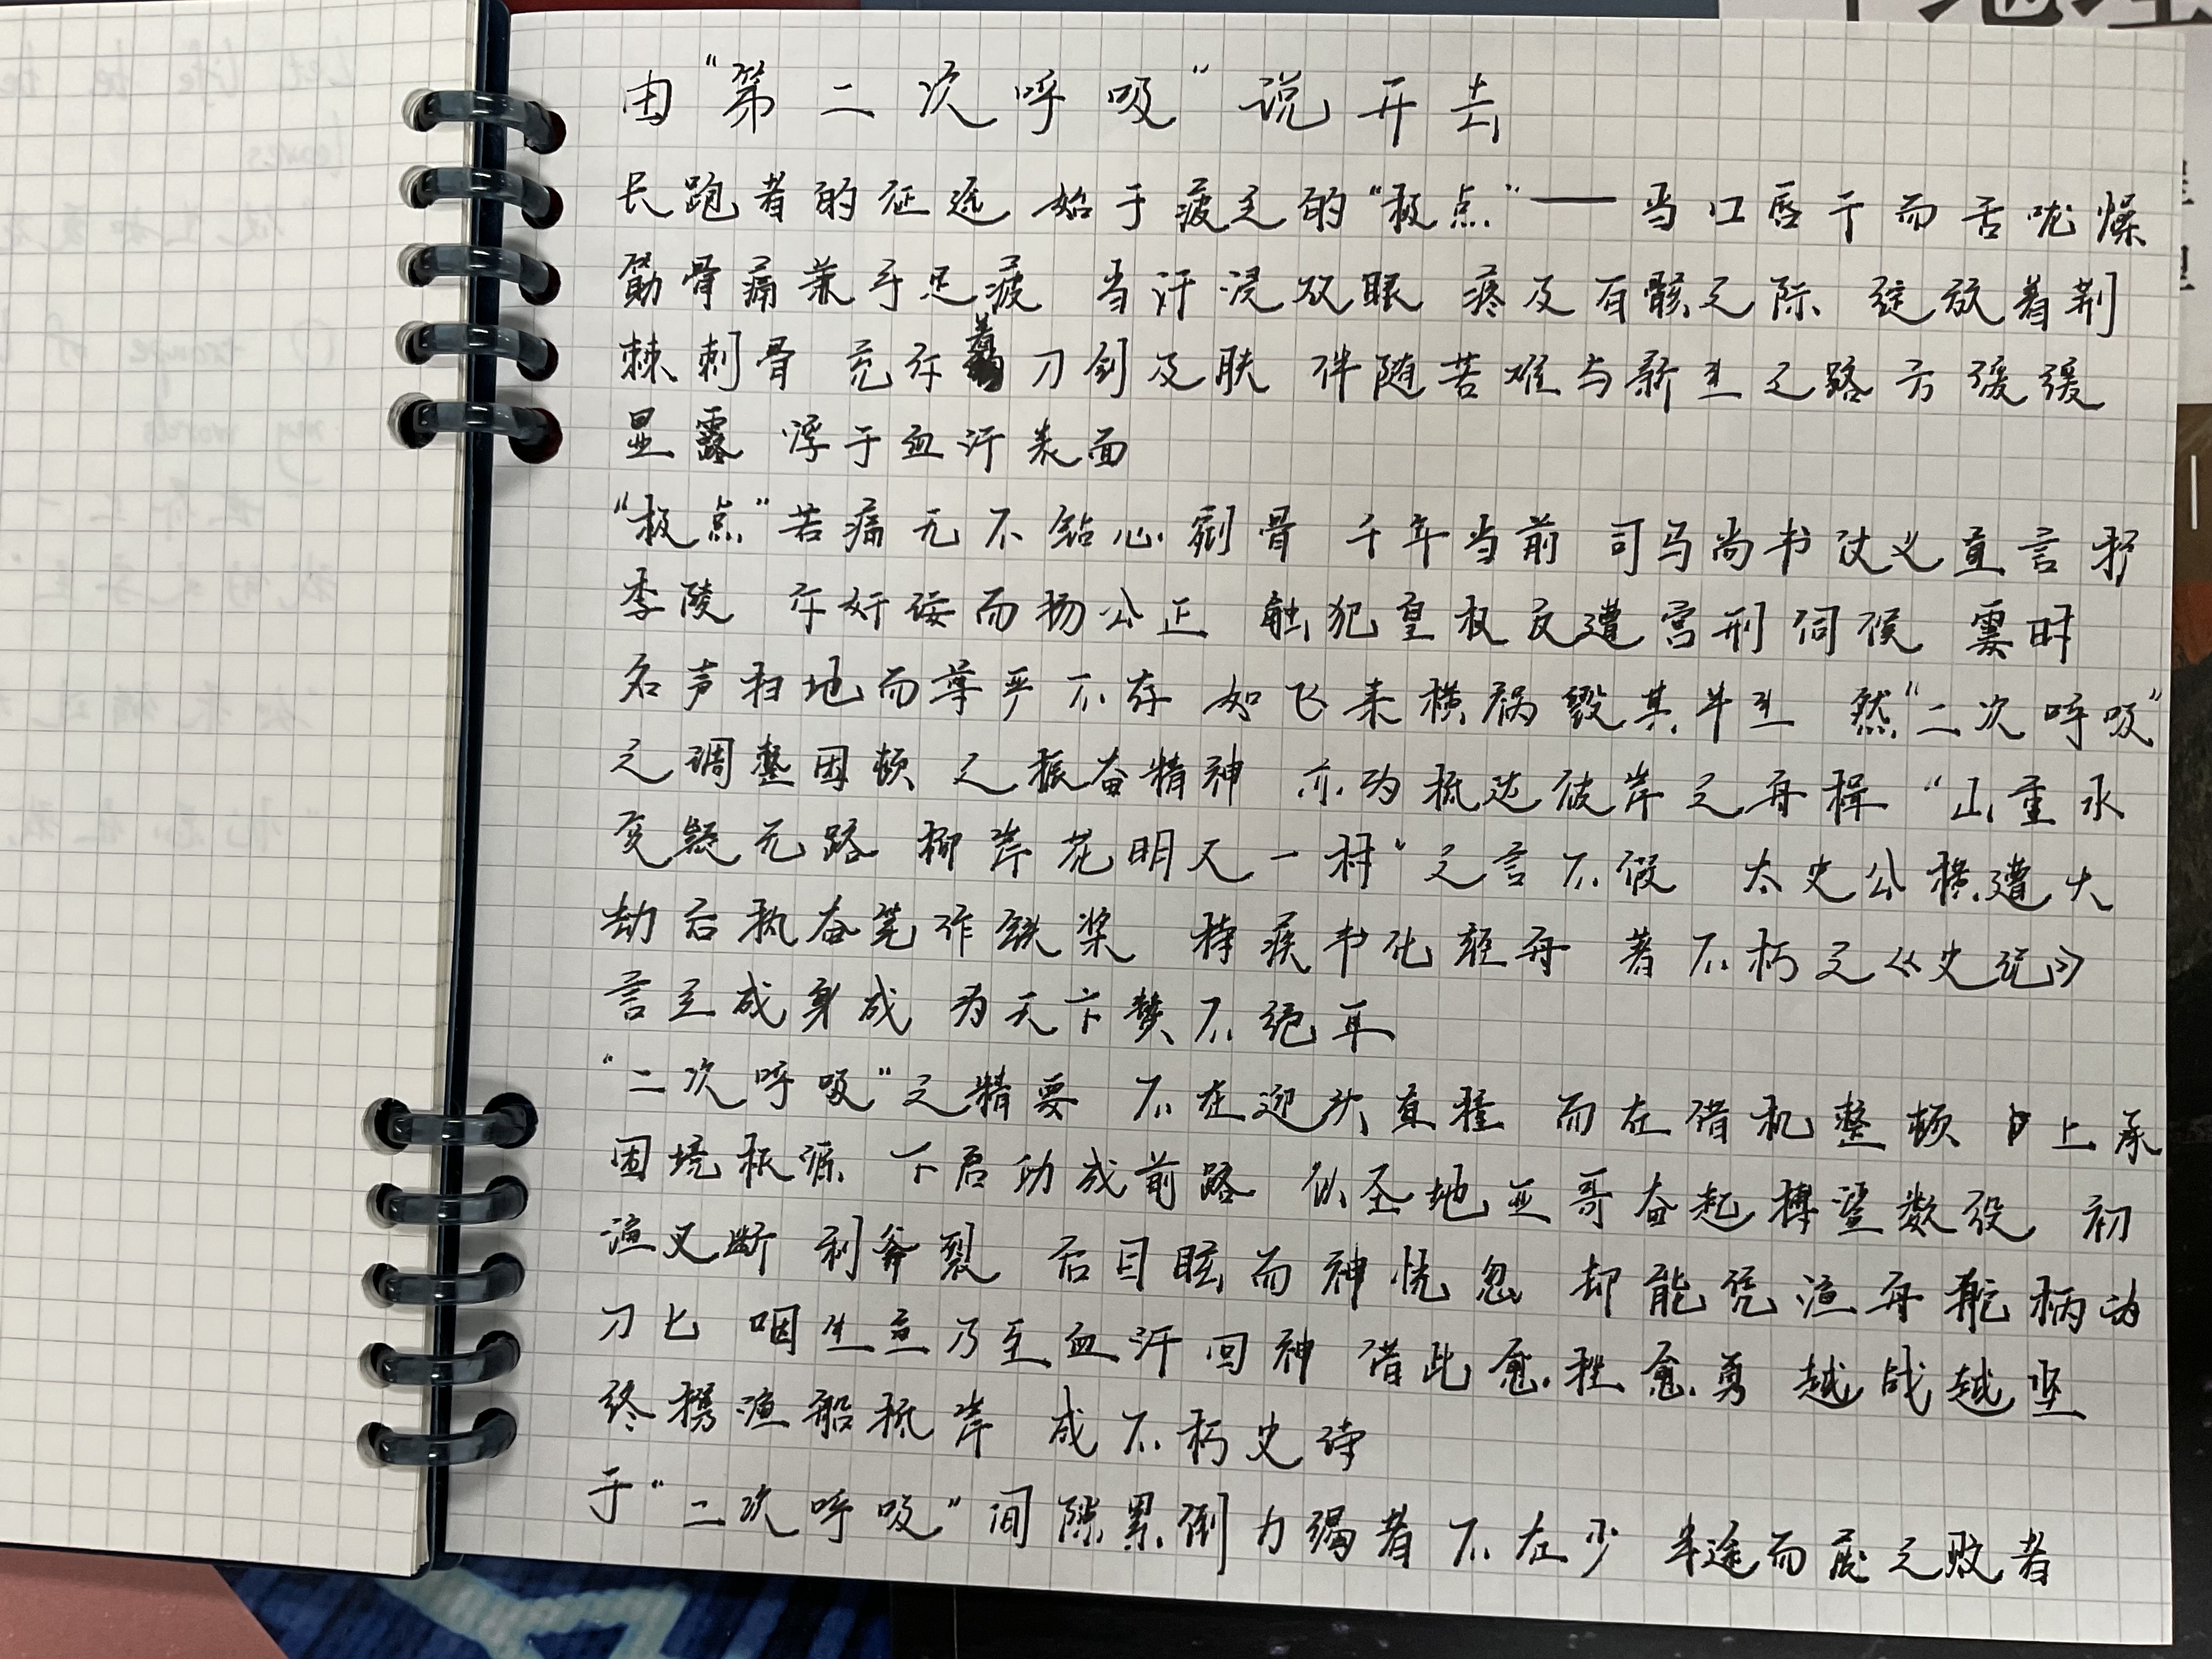 由“第二次呼吸”说开去
长跑者的征途 始于疲乏的“极点”——当口唇干而舌咙燥
筋骨痛兼手足疲 当汗浸双眼 疼及百骸之际 绽放着荆
棘刺骨 充斥着刀剑及肤 伴随苦难与新生之路方缓缓
显露 浮于血汗表面
“极点”苦痛无不钻心剜骨 千年当前 司马尚书仗义直言于
李陵 斥奸佞而扬公正 触犯皇权反遭宫刑伺候 霎时
名声扫地而尊严不存 如飞来横祸毁其半生 然“二次呼吸”
之调整困顿 之振奋精神 亦为抵达彼岸之舟楫 “山重水
复疑无路 柳岸花明又一村”之言不假 太史公横遭大
劫后执奋笔作铁桨 持疾书化轻舟 著不朽之《史记》
言至成身成 为天下赞不绝耳
“二次呼吸”之精要 不在迎头直撞 而在借机整顿 上承
困境根源 下启功成前路 似圣地亚哥奋起搏鲨数役 初
渔叉断 利斧裂 后目眩而神恍忽 却能凭渔舟舵柄为
刀匕 咽生鱼乃至血汗回神 借此愈挫愈勇 越战越坚
终携渔船抵岸 成不朽史诗
于“二次呼吸”间隙累倒力竭者不在少 半途而废之败者